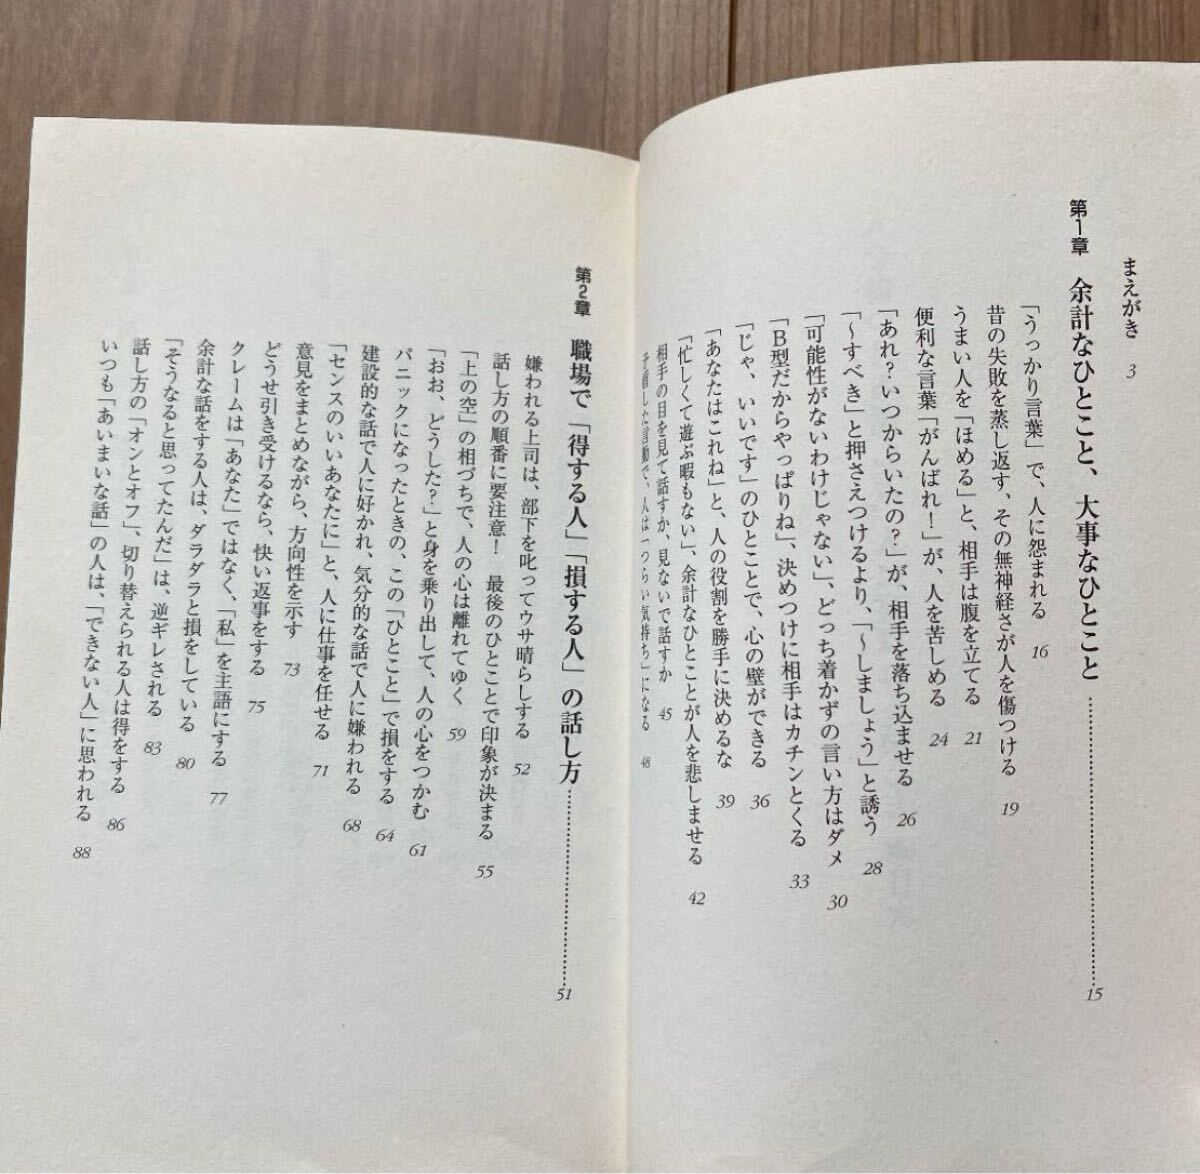 まえがき 3
第1章 余計なひとこと、大事なひとこと 15
「うっかり言葉」で、人に怨まれる 16
昔の失敗を蒸し返す、その無神経さが人を傷つける 19
うまい人を「ほめる」と、相手は腹を立てる 21
便利な言葉「がんばれ!」が、人を苦しめる 24
「あれ?いつからいたの?」が、相手を落ち込ませる 26
「〜すべき」と押さえつけるより、「〜しましょう」と誘う 28
「可能性がないわけじゃない」、どっち着かずの言い方はダメ 30
「B型だからやっぱりね」、決めつけに相手はカチンとくる 33
「じゃ、いいです」のひとことで、心の壁ができる 36
「あなたはこれね」と、人の役割を勝手に決めるな 39
「忙しくて遊ぶ暇もない」、余計なひとことが人を悲しませる 42
相手の目を見て話すか、見ないで話すか 45
した言動で、人は「つらい気持ち」になる 48
第2章 職場で「得する人」「損する人」の話し方 51
嫌われる上司は、部下を叱ってウサ晴らしする 52
話し方の順番に要注意! 最後のひとことで印象が決まる 55
「上の空」の相づちで、人の心は離れてゆく 59
「おお、どうした?」と身を乗り出して、人の心をつかむ 61
パニックになったときの、この「ひとこと」で損をする 64
建設的な話で人に好かれ、気分的な話で人に嫌われる 68
「センスのいいあなたに」と、人に仕事を任せる 71
意見をまとめながら、方向性を示す 73
どうせ引き受けるなら、快い返事をする 75
クレームは「あなた」ではなく、「私」を主語にする 77
余計な話をする人は、ダラダラと損をしている 80
「そうなると思ってたんだ」は、逆ギレされる 83
話し方の「オンとオフ」、切り替えられる人は得をする 86
いつも「あいまいな話」の人は、「できない人」に思われる 88